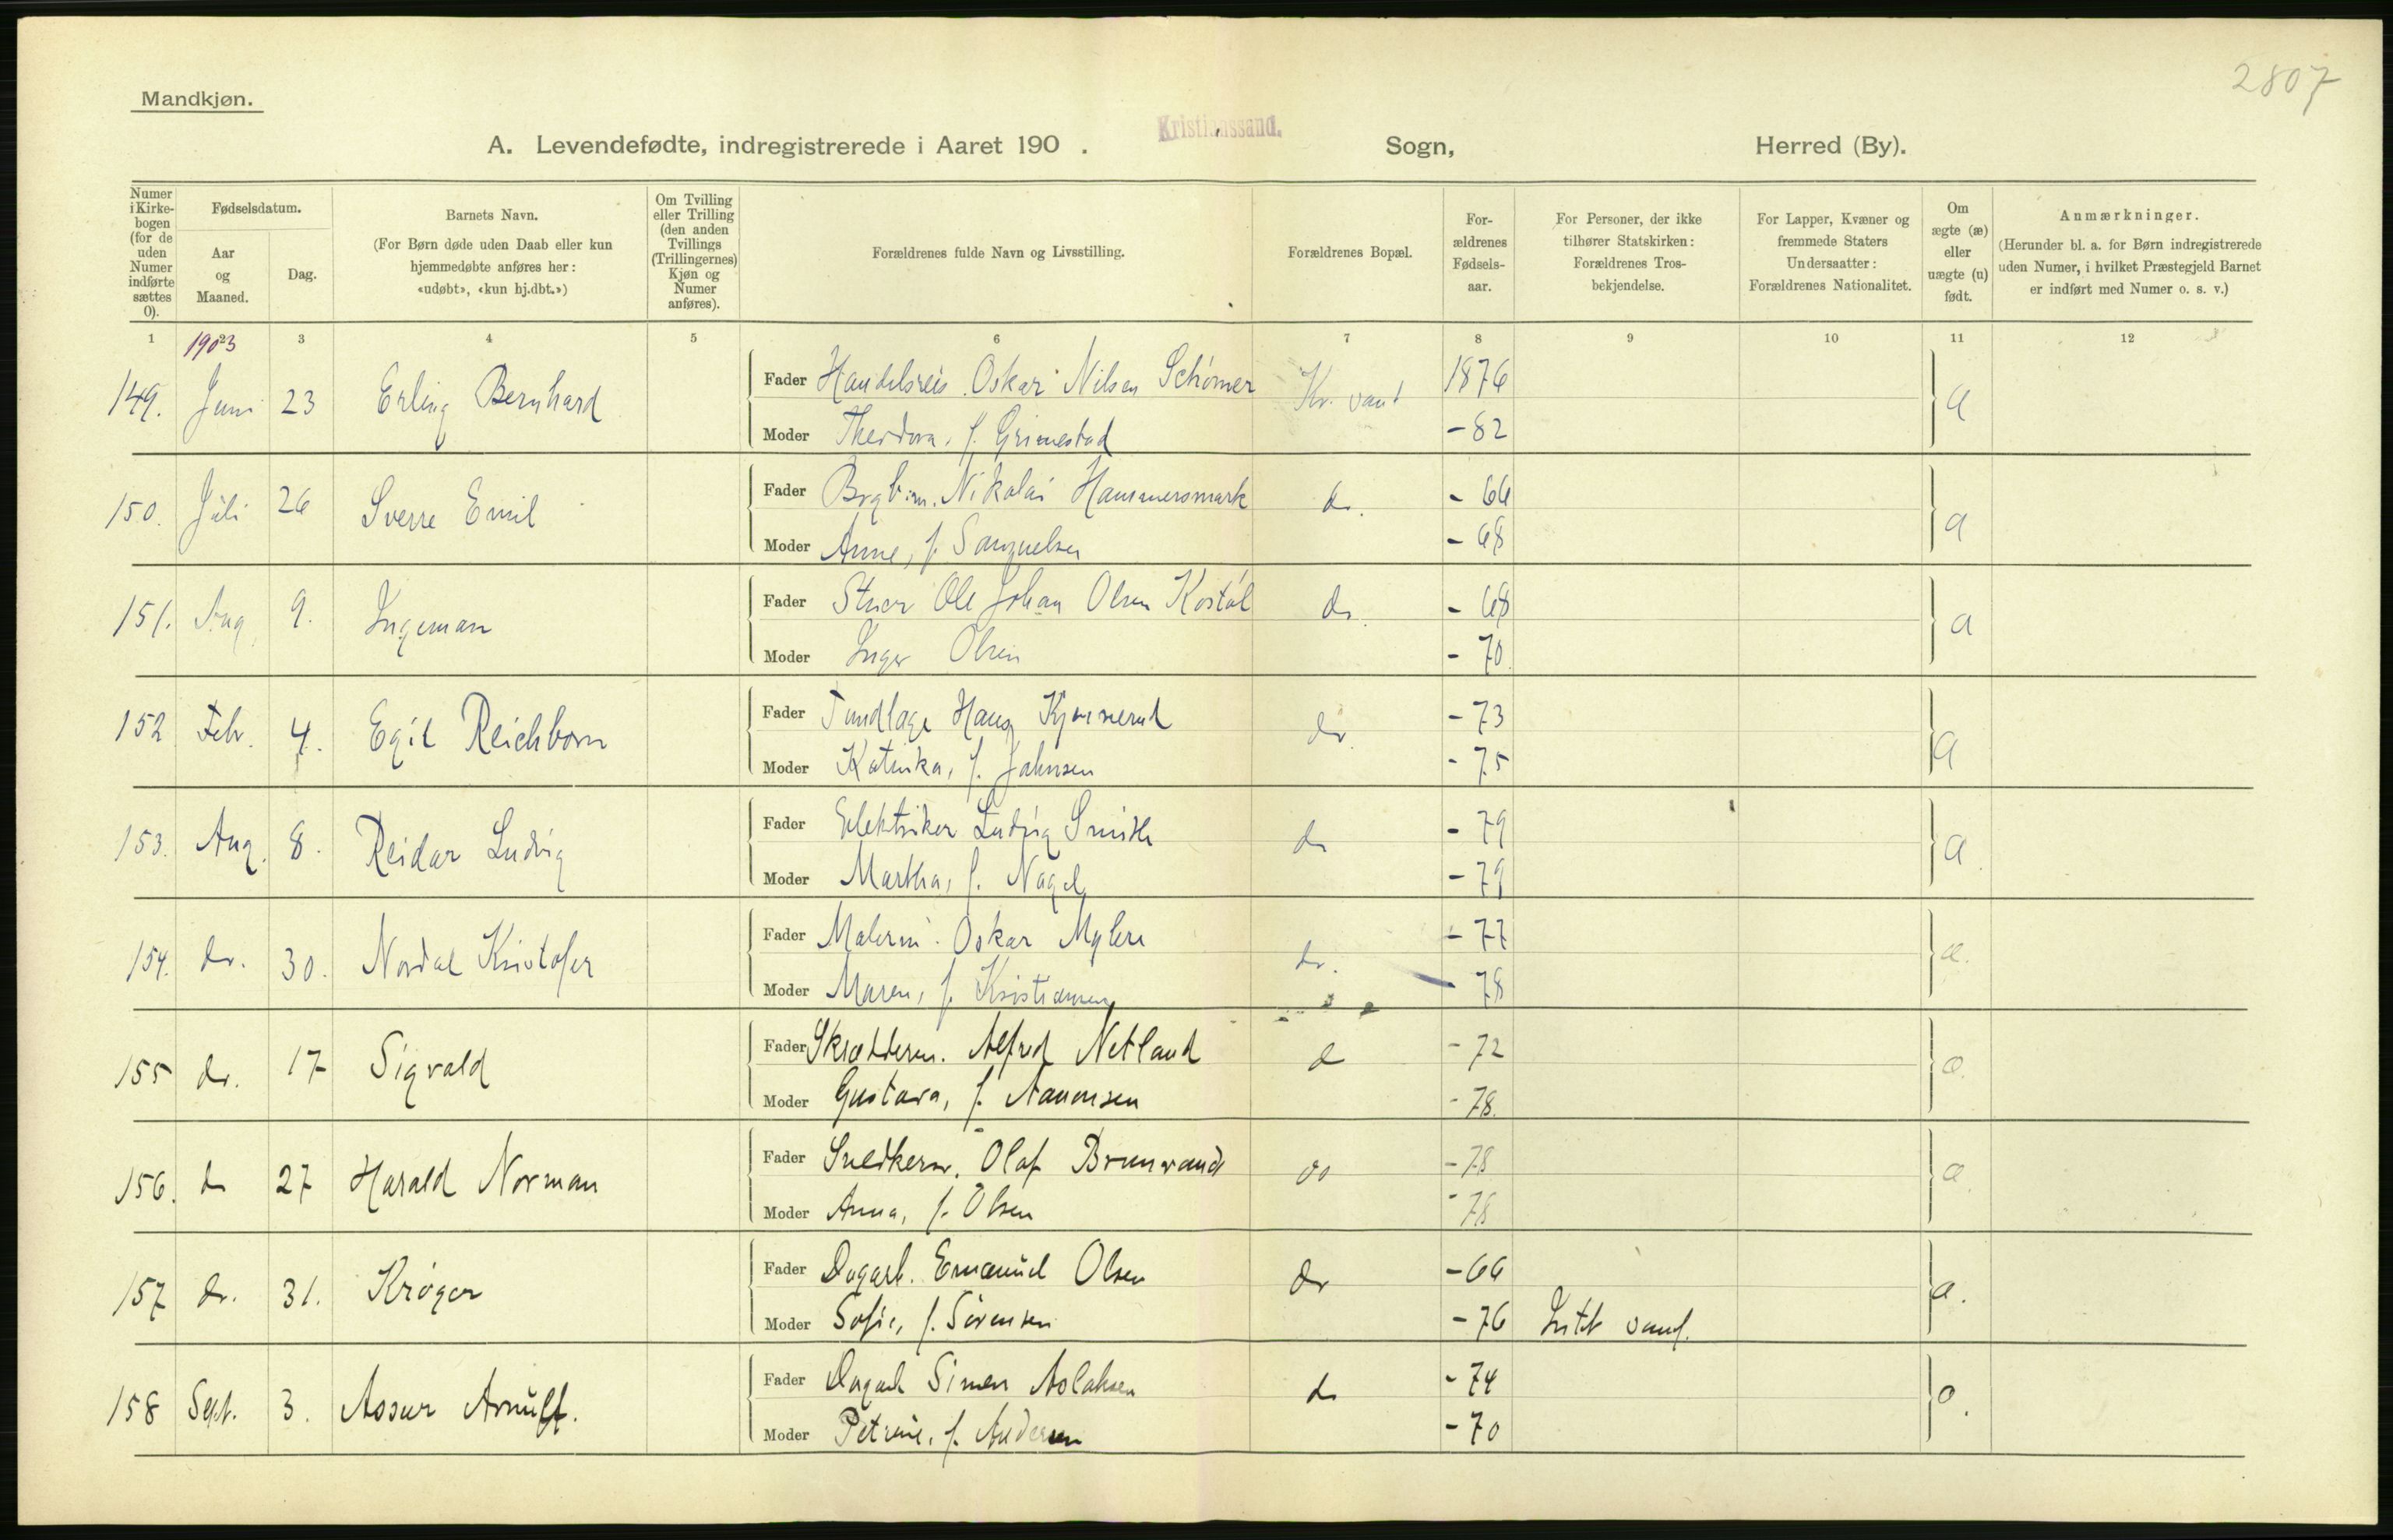 2807
Mandkjøn.
Kristianssand.
A. Levendefødte, indregistrerede i Aaret 190 . Sogn, Herred (By).
Numer i Kirke-bogen (for de uden Numer indførte sættes 0).
Fødselsdatum.
Aar og Maaned.
Dag.
Barnets Navn.
(For Børn døde uden Daab eller kun hjemmedøbte anføres her: «udøbt», «kun hj.dbt.»)
Om Tvilling eller Trilling (den anden Tvillings (Trillingernes) Kjøn og Numer anføres).
Forældrenes fulde Navn og Livsstilling.
Forældrenes Bopæl.
For-ældrenes Fødsels-aar.
For Personer, der ikke tilhører Statskirken: Forældrenes Tros-bekjendelse.
For Lapper, Kvæner og fremmede Staters Undersaatter: Forældrenes Nationalitet.
Om ægte (æ) eller uægte (u) født.
Anmærkninger.
(Herunder bl. a. for Børn indregistrerede uden Numer, i hvilket Præstegjeld Barnet er indført med Numer o. s. v.)
1 2 3 4 5 6 7 8 9 10 11 12
1903
149. Juni 23 Erling Bernhard Fader Handelsreis. Oskar Nilsen Schömer Kr. sand 1876 æ
Moder Theodora, f. Grimestad - 82
150. Juli 26 Sverre Emil Fader Nikolai Hammersmark do. - 66 æ
Moder Anne, f. Samuelsen - 68
151. Aug. 9. Ingeman Fader Ole Johan Olsen do. - 68 æ
Moder Inger Olsen - 70.
152 Febr. 4. Egil Reichborn Fader Hans Kjennerud do. - 73 æ
Moder Katinka, f. Johnsen - 75
153. Aug. 8. Reidar Ludvig Fader Elektriker Ludvig Smith do - 79 æ
Moder Martha, f. Nagel - 79
154. do. 30. Nordal Kristofer Fader Malerm. Oskar Myhre do. - 77 æ.
Moder Maren, f. Kristiansen - 78
155 do. 17 Sigvald Fader Skrædderm. Alfred Netland do - 72 æ.
Moder Gustava, f. Aanonsen - 78.
156. do 27 Harald Norman Fader Snedkerm. Olaf Brunvand do - 78 æ.
Moder Anna, f. Olsen - 78
157 do. 31. Krøger Fader Dagarb. Emanuel Olsen do - 66 æ.
Moder Sofie, f. Sörensen - 76 Luth samf.
158 Sept. 3. Assur Arnulf. Fader Dagarb Simen Aslaksen do - 74 æ.
Moder Petrine, f. Andersen - 70